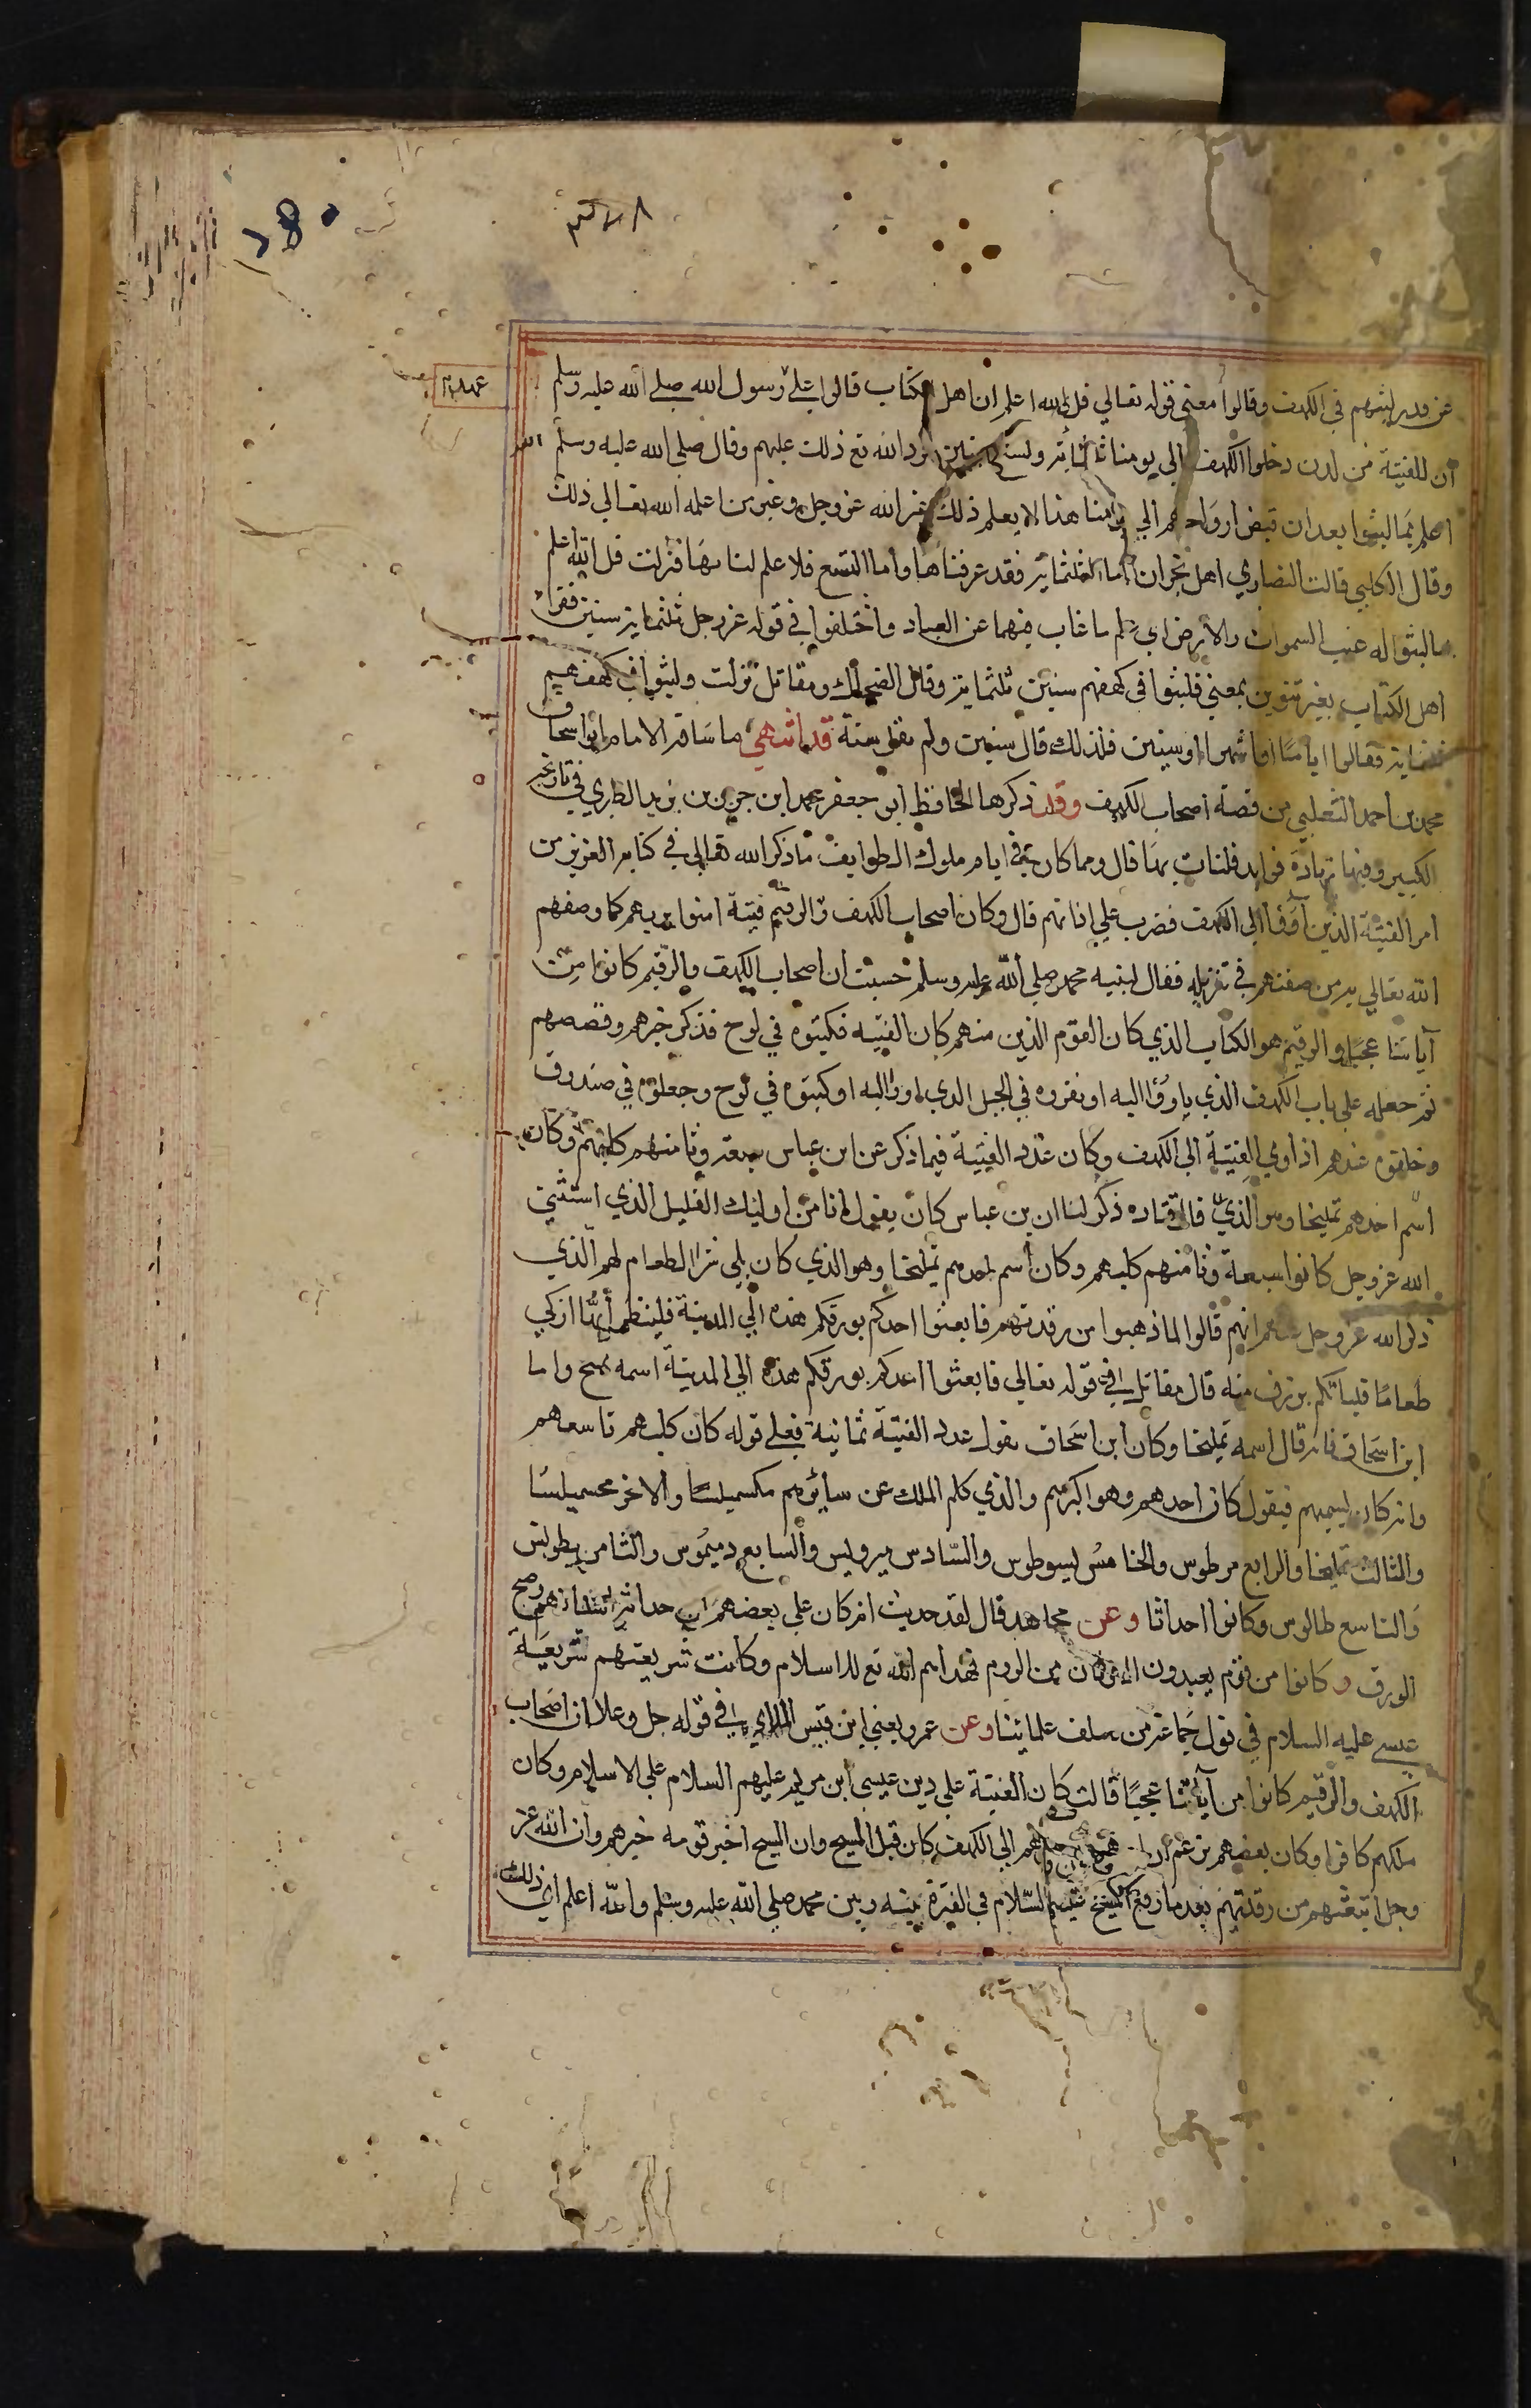 ١٨٠
عن قدر لبثهم في الكهف وقالوا معني قوله تعالي قل الله اعلم ان اهل الكتاب قالوا علي رسول الله صلي الله عليه وسلم
ان للفتية من لدن دخلوا الكهف الي يومنا ثلثماية وتسع سنين فرد الله تع ذلك عليهم وقال صلي الله عليه وسلم الله
اعلم بما لبثوا بعد ان قبض ارواحهم الي يومنا هذا لا يعلم ذلك غير الله عز وجل وغير من اعلمه الله تعالي ذلك
وقال الكلبي قالت النصاري اهل نجران اما الثلثماية فقد عرفناها واما التسع فلا علم لنا بها فنزلت قل الله اعلم
بما لبثوا له غيب السموات والارض اي علم ما غاب فيهما عن العباد واختلفوا في قوله عز وجل ثلثماية سنين فقراء
اهل الكتاب بغير تنوين بمعني فلبثوا في كهفهم سنين ثلثماية وقال الضحاك ومقاتل نزلت ولبثوا في كهفهم
ثلثماية فقالوا اياما او اشهرا او سنين فلذلك قال سنين ولم يقل سنة قد انتهي ما ساقه الامام ابو اسحاق
محمد بن احمد الثعلبي من قصة اصحاب الكهف وقد ذكرها الحافظ ابو جعفر محمد ابن جرير بن يزيد الطبري في تاريخه
الكبير وفيها زيادة فوايد فلنات بها قال ومما كان في ايام ملوك الطوايف ما ذكر الله تعالي في كتابه العزيز من
امر الفتية الذين اووا الي الكهف فضرب علي اذانهم قال وكان اصحاب الكهف والرقيم فتية امنوا بربهم كما وصفهم
الله تعالي به من صفتهم في تنزيله فقال لنبيه محمد صلي الله عليه وسلم حسبت ان اصحاب الكهف والرقيم كانوا من
آياتنا عجبا والرقيم هو الكتاب الذي كان القوم الذين منهم كان الفتيه فكتبوه في لوح فذكر خبرهم وقصصهم
ثم جعله علي باب الكهف الذي ياووا اليه او نقروه في الجبل الذي اووا اليه او كتبوه في لوح وجعلوه في صندوق
وخلفوه عندهم اذ اوي الفتية الي الكهف وكان عدد الفتية فيما ذكر عن ابن عباس سبعة وثامنهم كلبهم وكان
اسم احدهم تمليخا وهو الذي قال قتاده ذكر لنا ان بن عباس كان يقول انا من اوليك القليل الذي استثني
الله عز وجل كانوا سبعة وثامنهم كلبهم وكان اسم احدهم تمليخا وهو الذي كان يلي شرا الطعام لهم الذي
ذكر الله عز وجل عنهم انهم قالوا لما ذهبوا من رقدتهم فابعثوا احدكم بورقكم هذه الي المدينة فلينظر أيُّها ازكي
طعامًا فلياتكم برزق منه قال مقاتل في قوله تعالي فابعثوا احدكم بورقكم هذه الي المدينة اسمه واما
ابن اسحاق فانه قال اسمه تمليخا وكان ابن اسحاق يقول عدد الفتية ثمانية فعلي قوله كان كلبهم تاسعهم
وانه كان يسميهم فيقول كان احدهم وهو اكبرهم والذي كلم الملك عن سائرهم مكسميلسا والاخر محسميلسا
والثالث تمليخا والرابع مرطوس والخامس لسوطوس والسادس بيرويس والسابع دميموس والثامن بطونس
والتاسع طالوس وكانوا احداثا وعن مجاهد قال لقد حديث انه كان علي بعضهم من حداثة
الورق وكانوا من قوم يعبدون الاوثان من الروم فهداهم الله تع للاسلام وكانت شريعتهم شريعة
عيسي عليه السلام في قول جماعة من سلف علمائنا وعن عمرو يعني ابن قيس الملاي في قوله جل وعلا ان اصحاب
الكهف والرقيم كانوا من آياتنا عجبًا قالت كان الفتية علي دين عيسي ابن مريم عليهم السلام علي الاسلام وكان
ملكهم كافرا وكان بعضهم الي الكهف كان قبل المسيح وان المسيح اخبر قومه خبرهم وان الله عز
وجل ابتعثهم من رقدتهم بعد ما رفع المسيح عليهم السلام في الفترة بينه وبين محمد صلي الله عليه وسلم والله اعلم اي ذلك